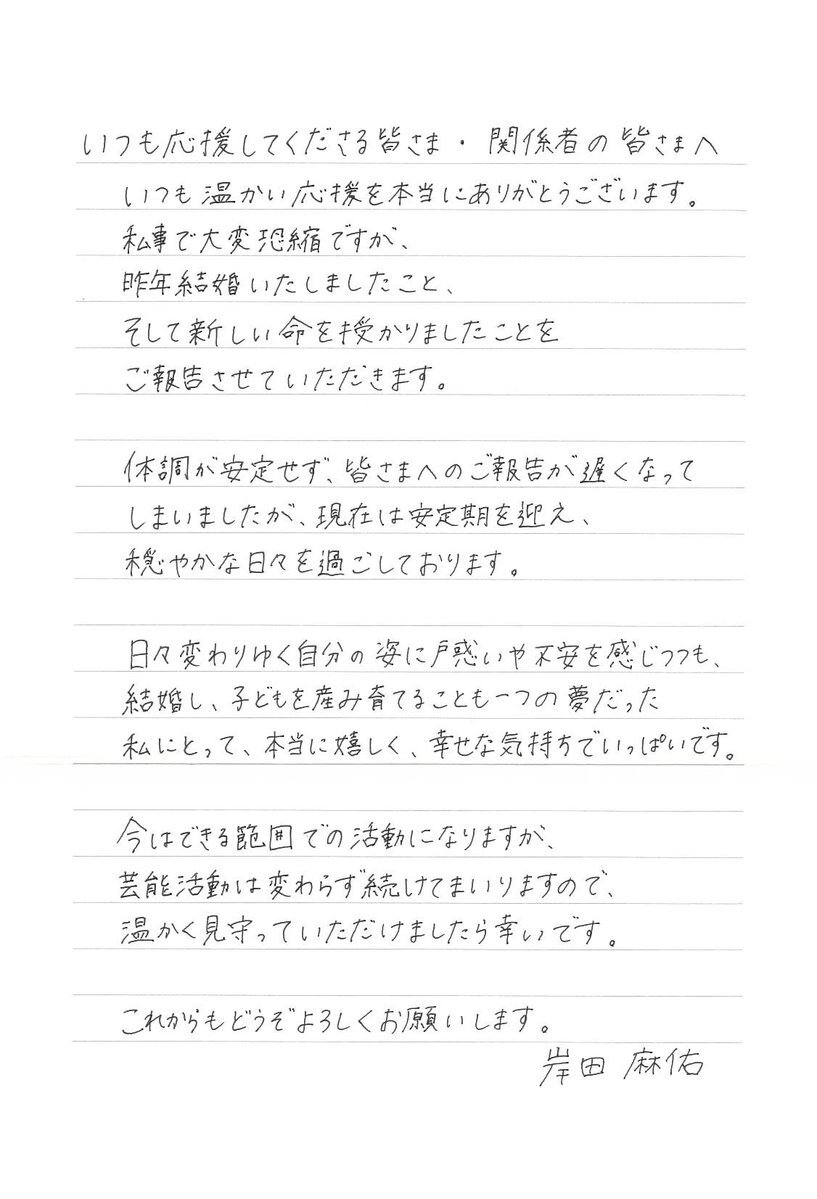 いつも応援してくださる皆さま・関係者の皆さまへ
いつも温かい応援を本当にありがとうございます。
私事で大変恐縮ですが、
昨年結婚いたしましたこと、
そして新しい命を授かりましたことを
ご報告させていただきます。
体調が安定せず、皆さまへのご報告が遅くなって
しまいましたが、現在は安定期を迎え、
穏やかな日々を過ごしております。
日々変わりゆく自分の姿に戸惑いや不安を感じつつも、
結婚し、子どもを産み育てることも一つの夢だった
私にとって、本当に嬉しく、幸せな気持ちでいっぱいです。
今はできる範囲での活動になりますが、
芸能活動は変わらず続けてまいりますので、
温かく見守っていただけましたら幸いです。
これからもどうぞよろしくお願いします。
岸田 麻佑